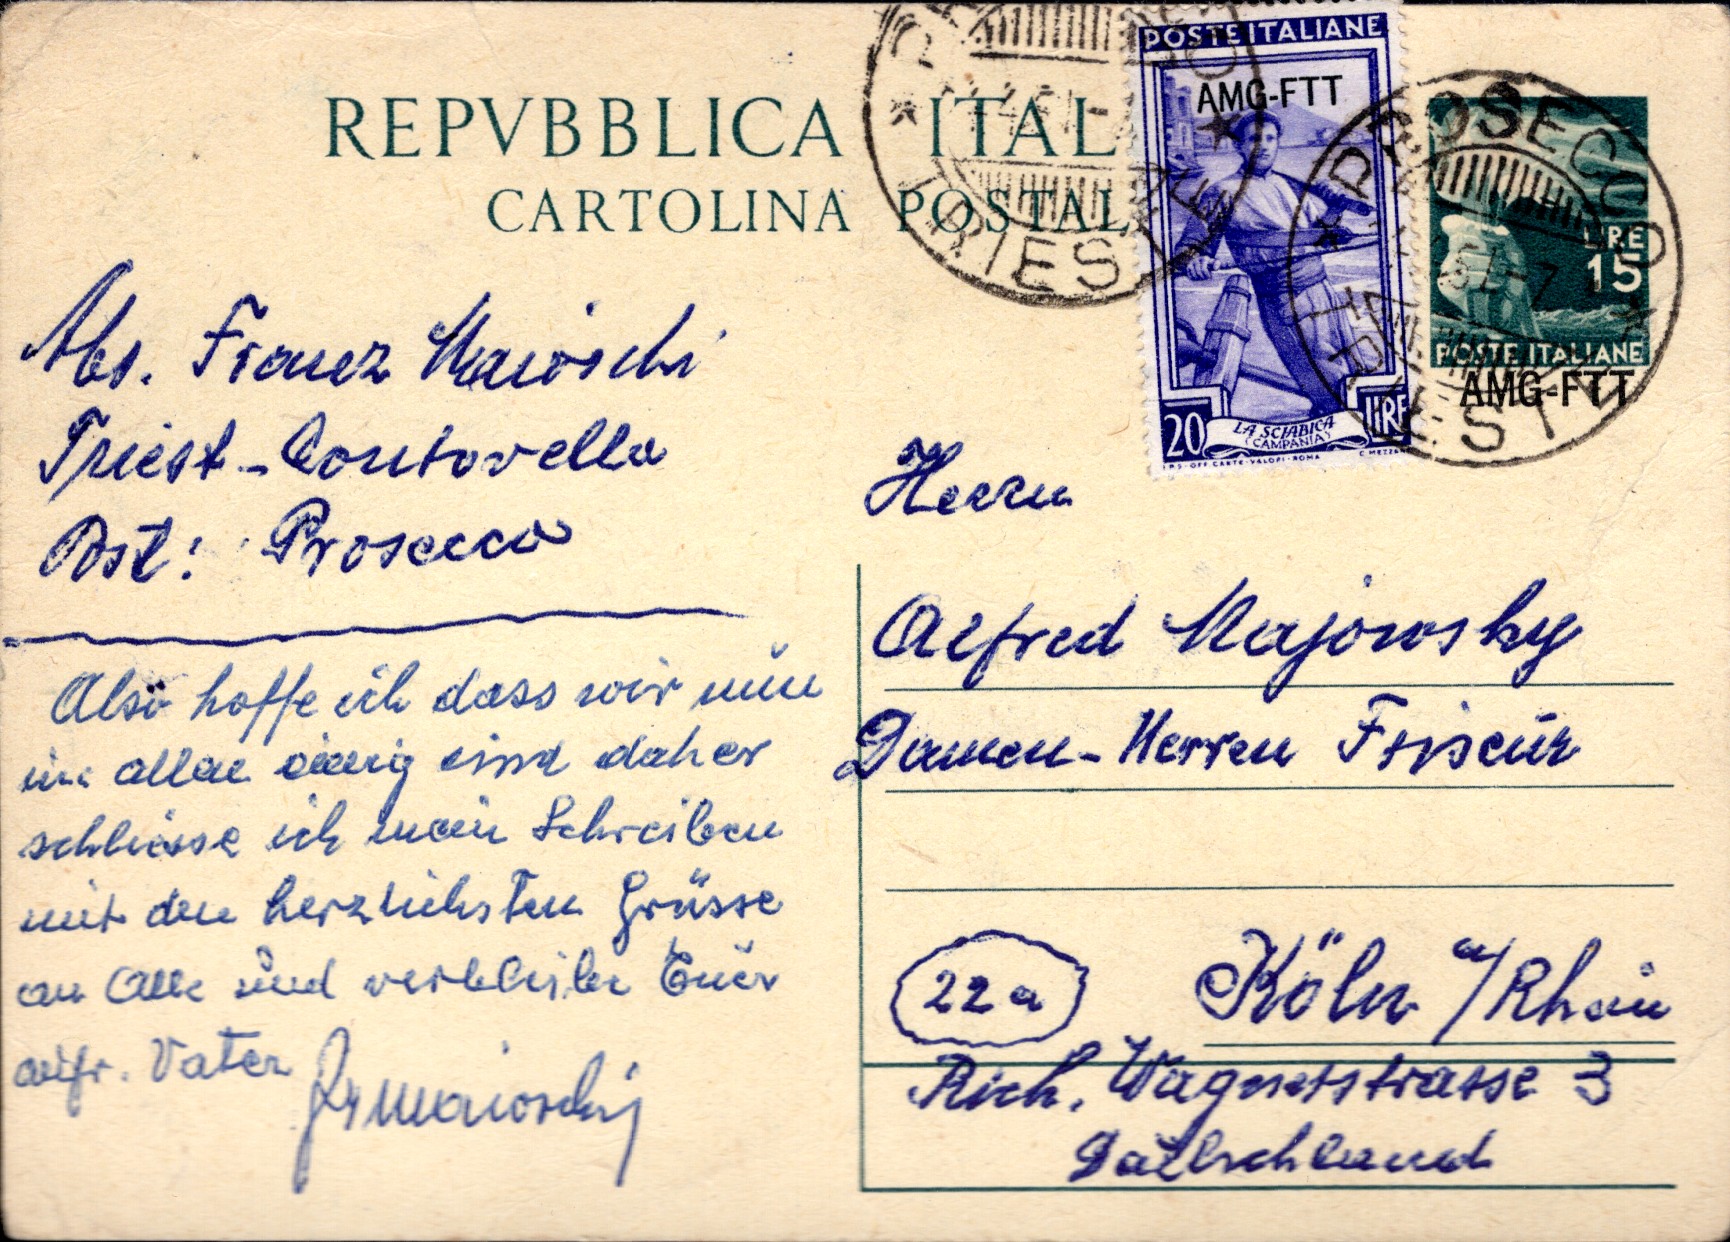 REPVBBLICA ITAL
CARTOLINA POSTAL
POSTE ITALIANE
AMG-FTT
20 LIRE
LA SCIABICA
(CAMPANIA)
I.P.S-OFF. CARTE-VALORI-ROMA C. MEZZA
PROSECCO
TRIESTE
LIRE
15
POSTE ITALIANE
AMG-FTT
Abs. Franz Maioschi
Triest - Contovello
Post: Prosecco
Also hoffe ich dass wir nun
in allen einig sind daher
schliesse ich mein Schreiben
mit den herzlichsten Grüsse
an Alle und verbleibe Euer
aufr. Vater
Frmaioschi
Herrn
Alfred Majowsky
Damen-Herren Friseur
22a
Köln a/Rhein
Rich. Wagnerstrasse 3
Deutschland